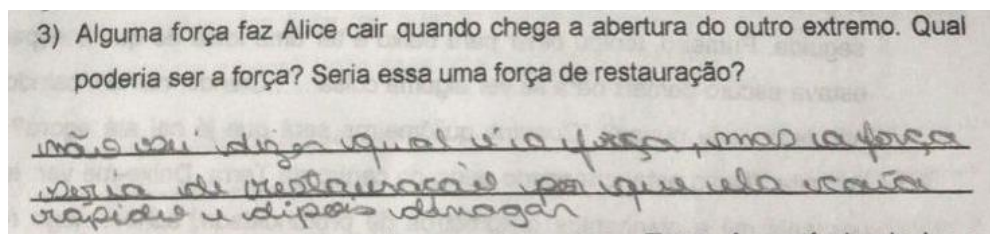 3) Alguma força faz Alice cair quando chega a abertura do outro extremo. Qual
poderia ser a força? Seria essa uma força de restauração?
não sei dizer qual é a força, mas a força
seria de restauração por que ela caía
rápido e dipois divagar